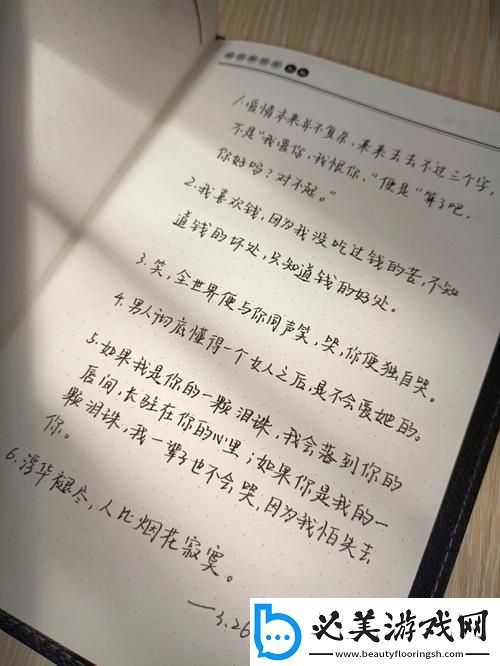 1.爱情本来并不复杂，来来去去不过三个字，
不是“我爱你，我恨你，”便是“算了吧，
你好吗？对不起。”
2.我喜欢钱，因为我没吃过钱的苦，不知
道钱的坏处，只知道钱的好处。
3.笑，全世界便与你同声笑，哭，你便独自哭。
4.男人彻底懂得一个女人之后，是不会爱她的。
5.如果我是你的一颗泪珠，我会落到你的
唇间，长驻在你的心里；如果你是我的一
颗泪珠，我一辈子也不会哭，因为我怕失去
你。
6.浮华褪尽，人比烟花寂寞。
——3.26
必美游戏网
www.beautyflooringsh.com